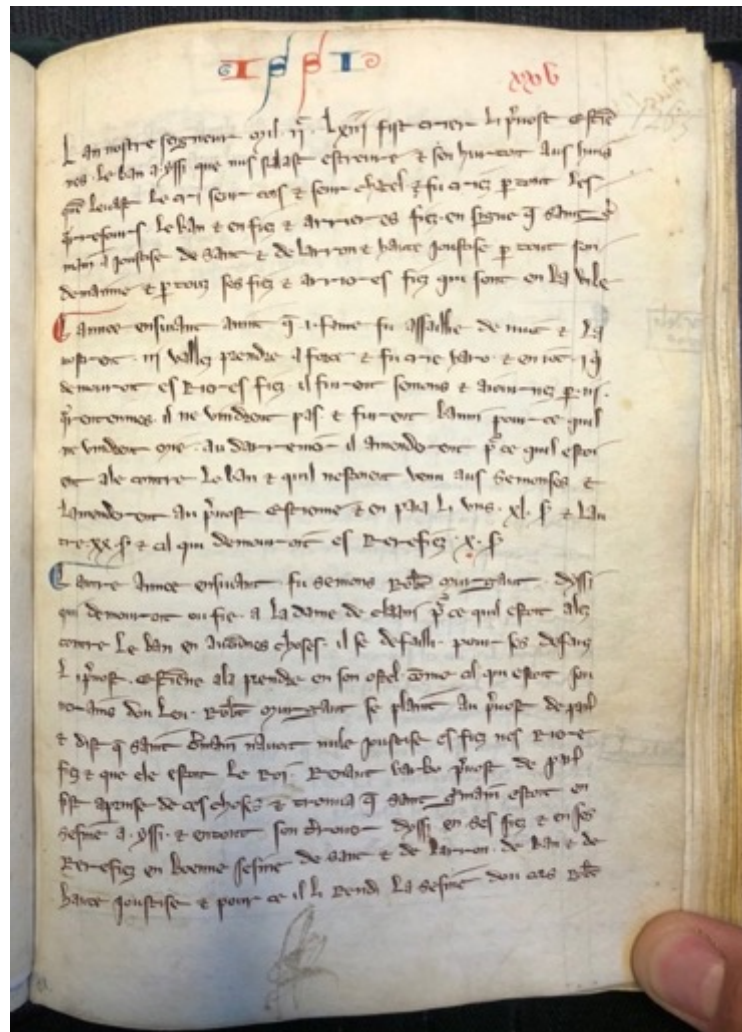 ISSI
xxv
L an nostre segneur mil. IIc. lxiii fist crier li pvost estiene
nes. le ban a yssi que nus salast estreure & sen hurtoit aus huis
que levast le cri seur cors & seur chatel & fu criez p tout les
qrrefours le ban & en fiez & arrieres fiez en signe q saint g
main a joustise de sanc & de larron & haute joustise p tout son
demainne & p touz ses fiez & arrieres fiez qui sont en la vile
L annee ensivant avint q .i. fame fu assaillie de nuit & la
vostrent .iii. vallez prendre a force & fu crie haro & en iot .i. q
demouroit es rieres fiez. il furent semons & aiournez p .iii.
qrentennes. il ne vindrent pas & furent banni pour ce quil
ne vindrent onc. au darrenier il amenderent p ce quil estoi
ent ale contre le ban & quil nestoient venu aus semonses &
lamenderent au pvost estienne & en paia li uns. xl. s. & lau
tre. xx. s. & cil qui demouroit es rerefiez. x. s.
L autre annee ensivant. fu semons Robt murgaut. dyssi
qui demouroit ou fie. a la dame de clam p ce quil estoit alez
contre le ban en aucunes choses. il se defailli. pour ses defauz
li pvost. estiene ala prendre en son ostel. come cil qui estoit son
Robt murgaut se plaint au pvost de paris
& dist q saint gmain navoit nule joustise es fiez nes riere
fiez & que ele estoit le Roi. Renaut barbo pvost de paris
fist aprise de ces choses & trouva q saint gmain estoit en
sesine a. yssi. & entout son dyssi en ses fiez & en ses
rerefiez en boenne sesine de sanc & de larron. de ban & de
haute joustise & pour ce il li rendi la sesine dou cors Robt